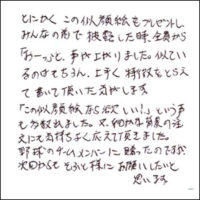 とにかく この似顔絵もプレゼントし、
みんなの前で 披露した時、全員から
「おーっ」と、声が上がりました。似てい
るのはもちろん、上手く特徴をとらえ
て書いて頂いた気がします
「この似顔絵なら欲しい!」という声
も多数ありました。又、細かな背景の注
文にも気持ちよく応えて頂きました。
野球のチームメンバーに贈ったのですが
次回からも そふと様に お願いしたいと
思います